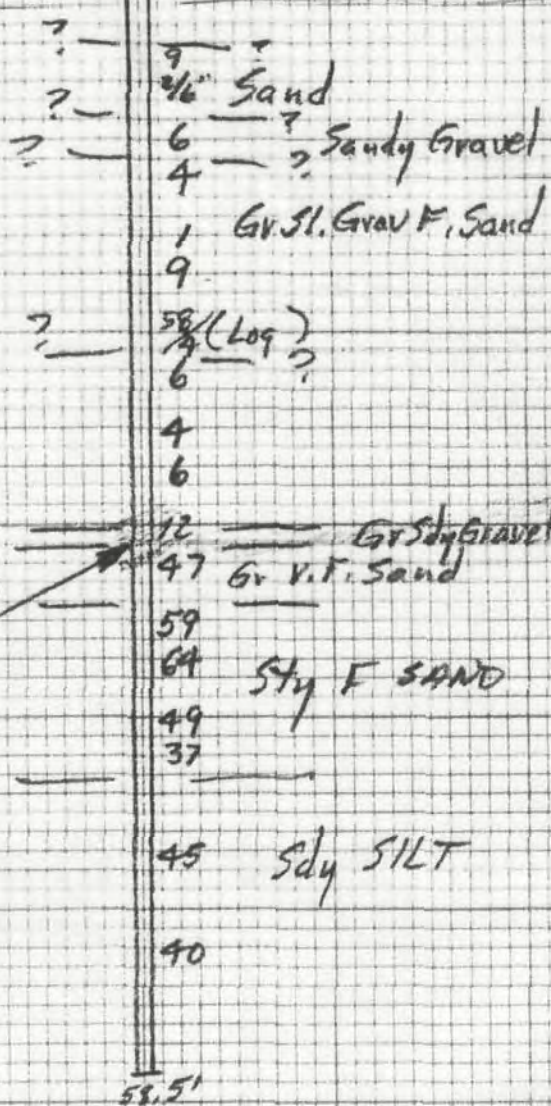 ? ?
9
2/6" Sand
? ?
6 Sandy Gravel
? ?
4
Gr. Sl. Grav F. Sand
1
9
58/4 (Log)
? ?
6
4
6
12 Gr Sdy Gravel
47 Gr V. F. Sand
59
64 Sty F SAND
49
37
45 Sdy SILT
40
58.5'